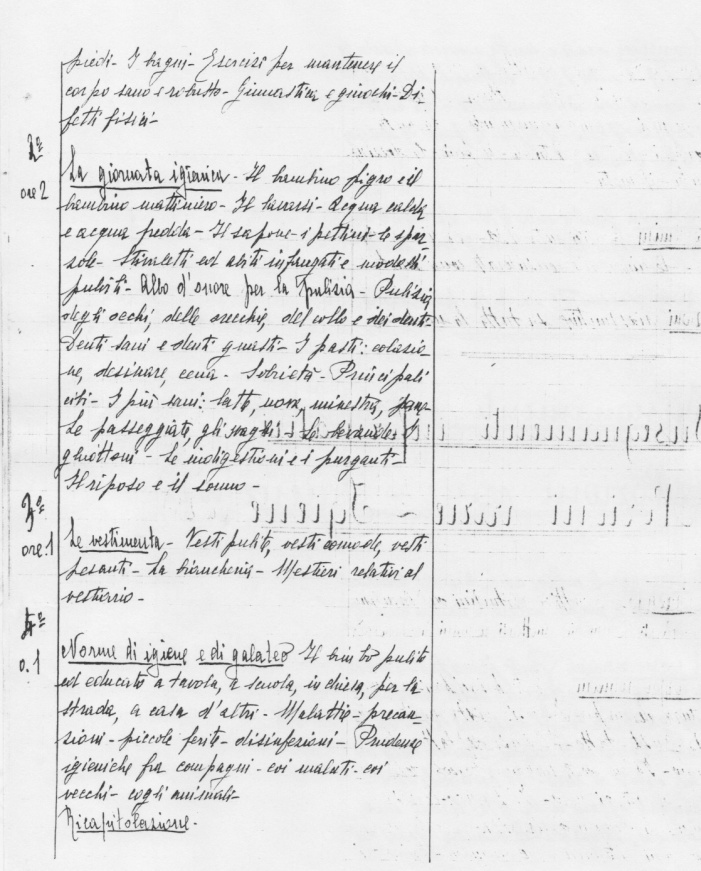 piedi - I bagni - Esercizi per mantenere il
corpo sano e robusto - Ginnastica e giuochi - Di-
fetti fisici -
2º
ore 2
La giornata igienica - Il bambino pigro e il
bambino mattiniero - Il lavarsi - Acqua calda
e acqua fredda - Il sapone - i pettini - le spaz-
zole - Stivaletti ed abiti infangati e modo di
pulirli - Albo d'onore per la pulizia - Pulizia
degli occhi, delle orecchie, del collo e dei denti -
Denti sani e denti guasti - I pasti: colazio-
ne, desinare, cena - Sobrietà - Principali
cibi - I più sani: latte, uova, minestra, pane
Le passeggiate, gli svaghi - Le bevande - I
ghiottoni - Le indigestioni e i purganti -
Il riposo e il sonno -
3º
ore 1
Le vestimenta - Vesti pulite, vesti comode, vesti
pesanti - La biancheria - Mestieri relativi al
vestiario -
4º
o. 1
Norme di igiene e di galateo Il bimbo pulito
ed educato a tavola, a scuola, in chiesa, per la
strada, a casa d'altri - Malattie - precau-
zioni - piccole ferite - disinfezioni - Prudenze
igieniche fra compagni - coi malati - coi
vecchi - cogli animali -
Ricapitolazione -